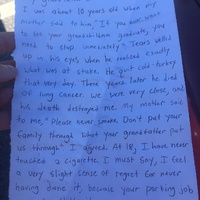 I was about 10 years old when my
mother said to him, "If you ever want
to see your grandchildren graduate, you
need to stop immediately." Tears welled
up in his eyes when he realized exactly
what was at stake. He quit cold-turkey
that very day. Three years later he died
of lung cancer. We were very close, and
his death destroyed me. My mother said
to me, "Please never smoke. Don't put your
family through what your grandfather put
us through." I agreed. At 18, I have never
touched a cigarette. I must say, I feel
a very slight sense of regret for never
having done it, because your parking job